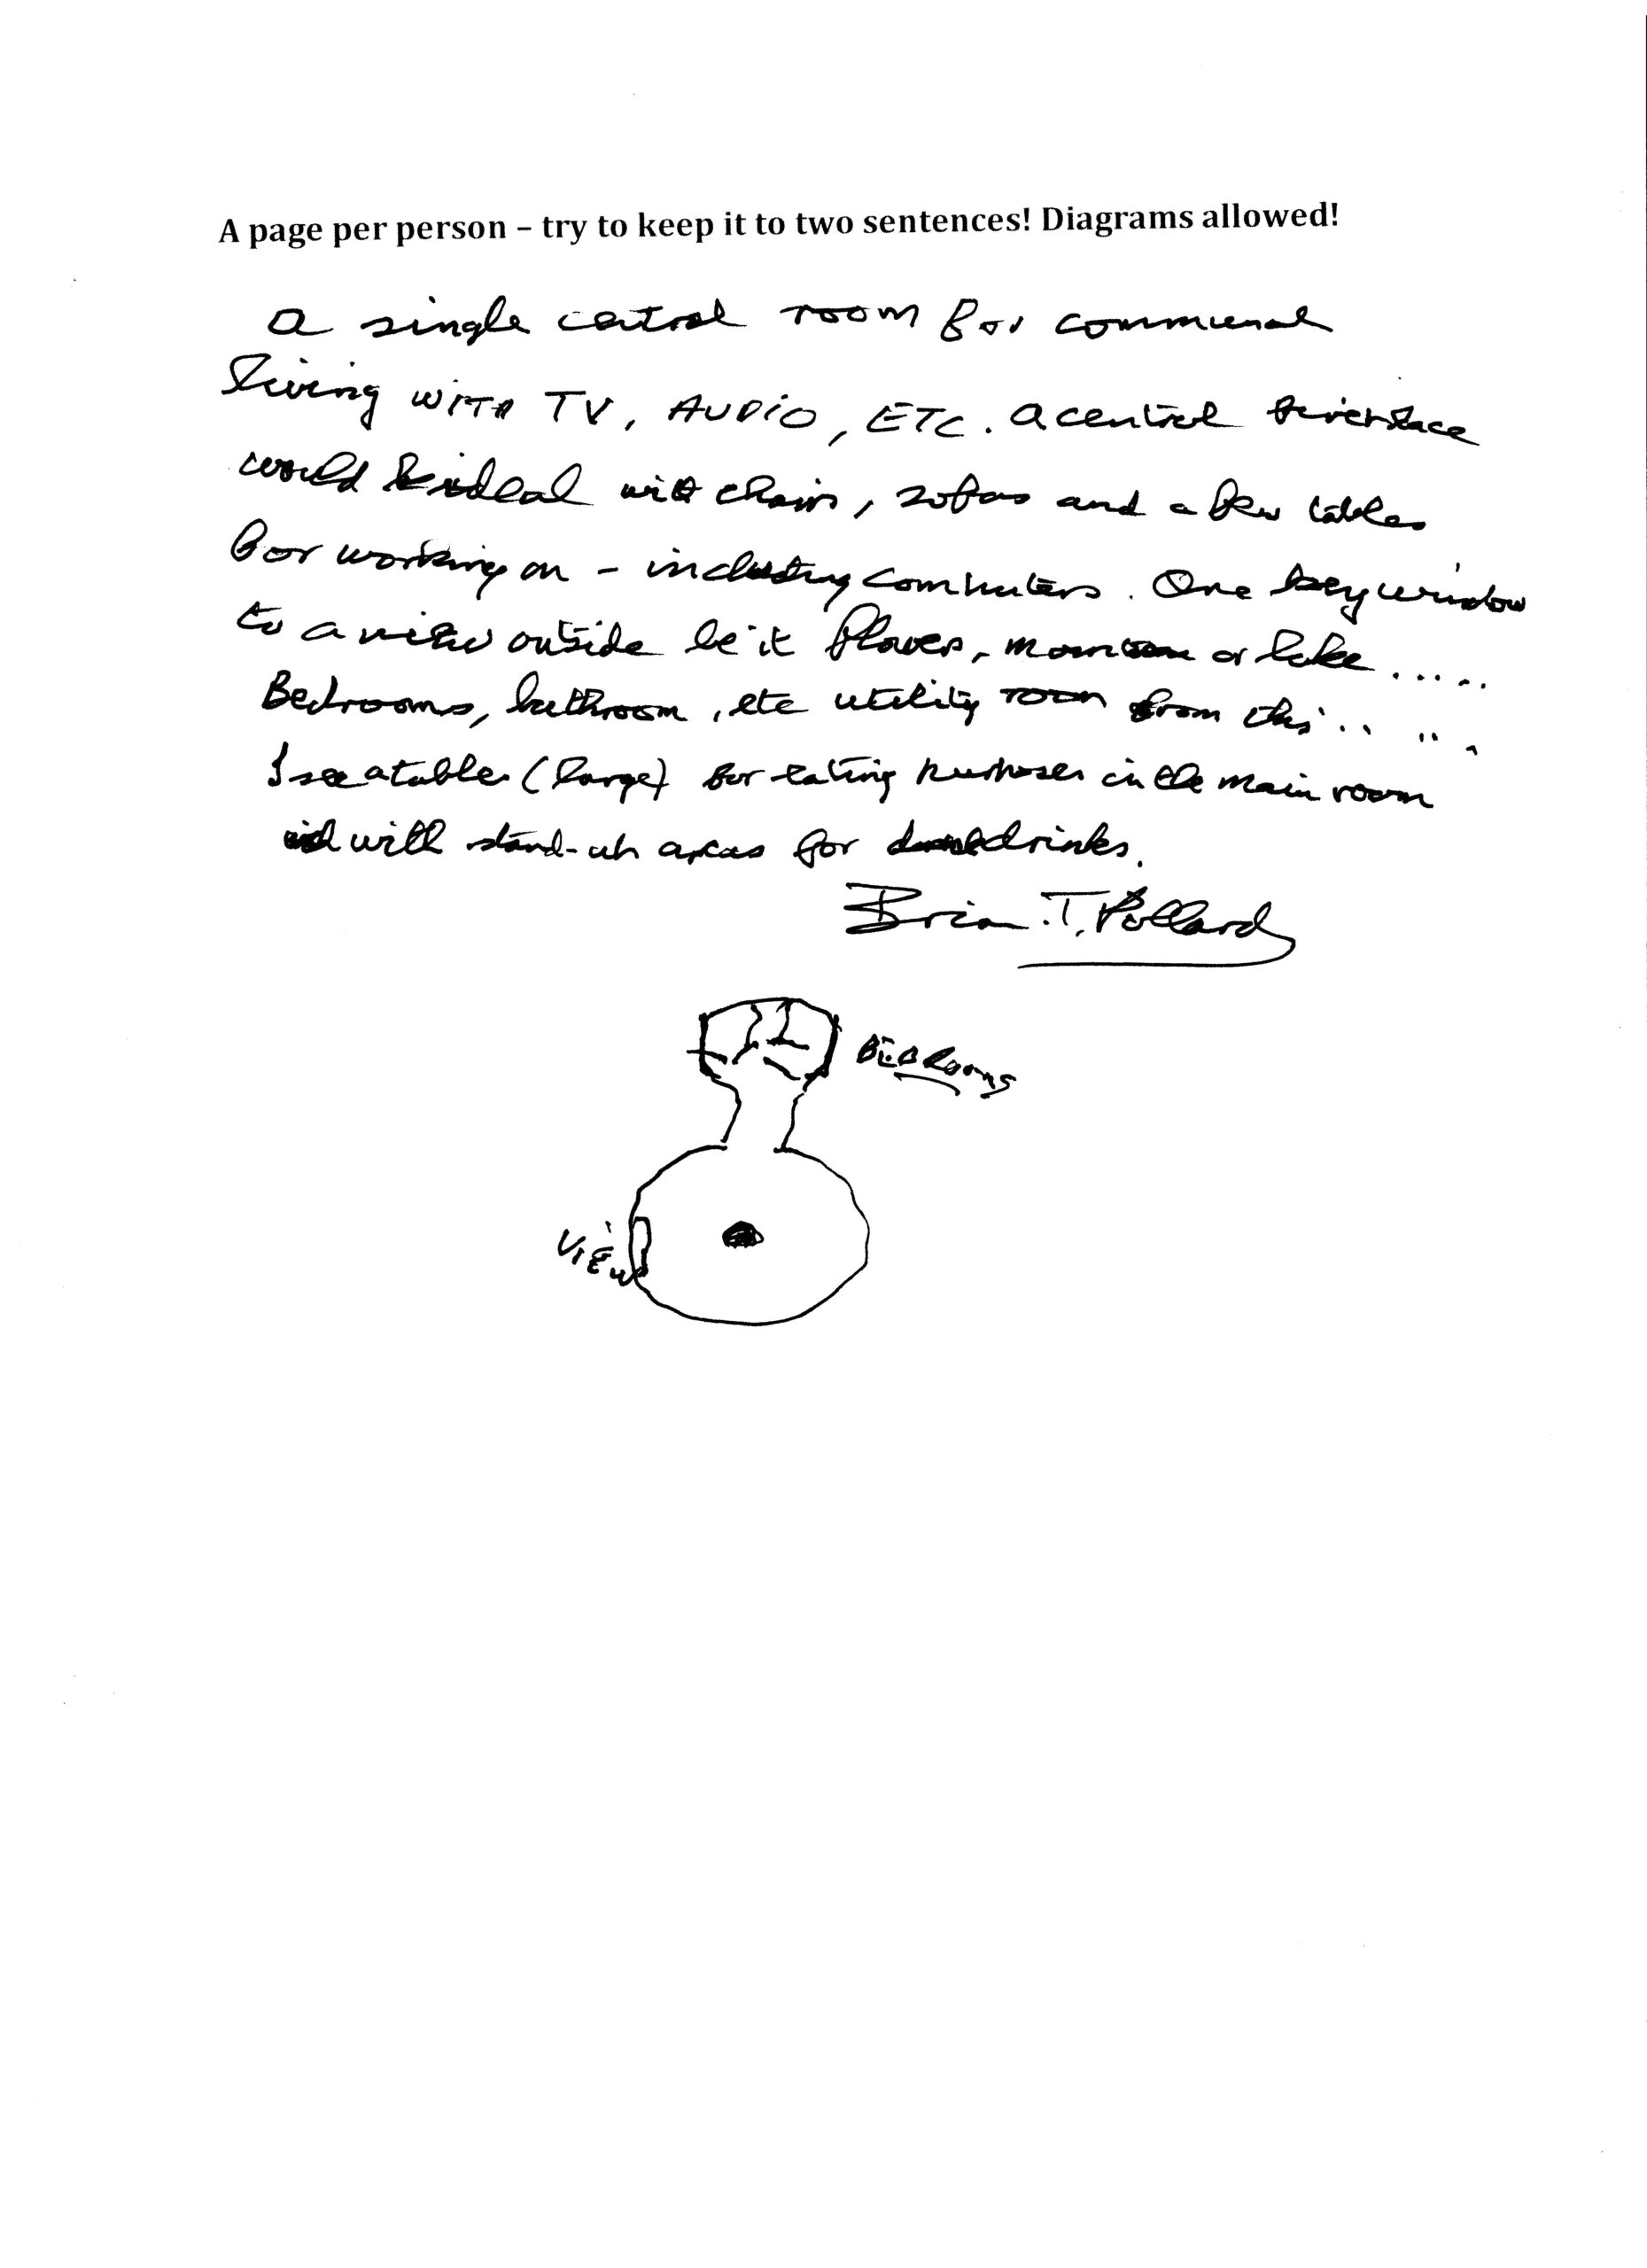 A page per person – try to keep it to two sentences! Diagrams allowed!
A single central room for communal
living WITH TV, AUDIO, ETC. A central fireplace
would be ideal with chairs, sofas and a few tables
for working on – including computers. One key window
to a view outside be it flowers, or lake.....
Bedrooms, bathroom, etc utility room from this.. ...
I see a table (large) for eating purposes in the main room
with stand-up areas for drinks.
Brian T. Pollard
BEDROOMS
VIEW